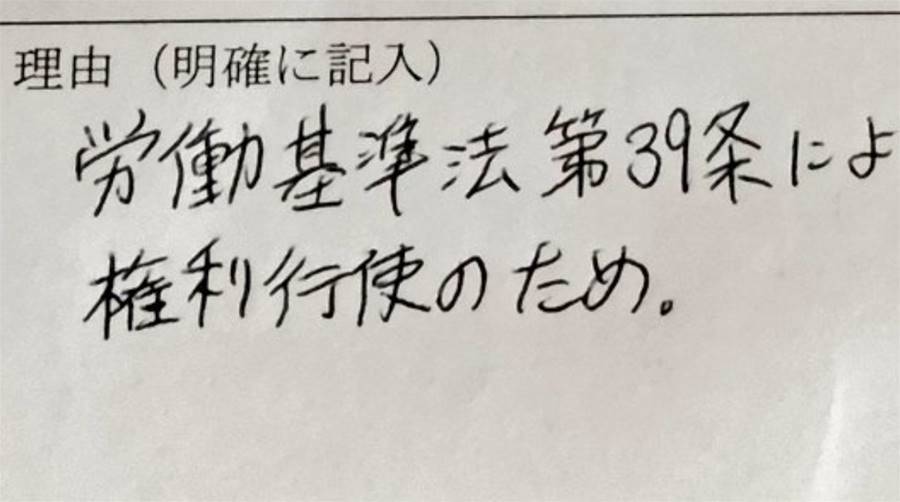 理由（明確に記入）
労働基準法第39条によ
権利行使のため。